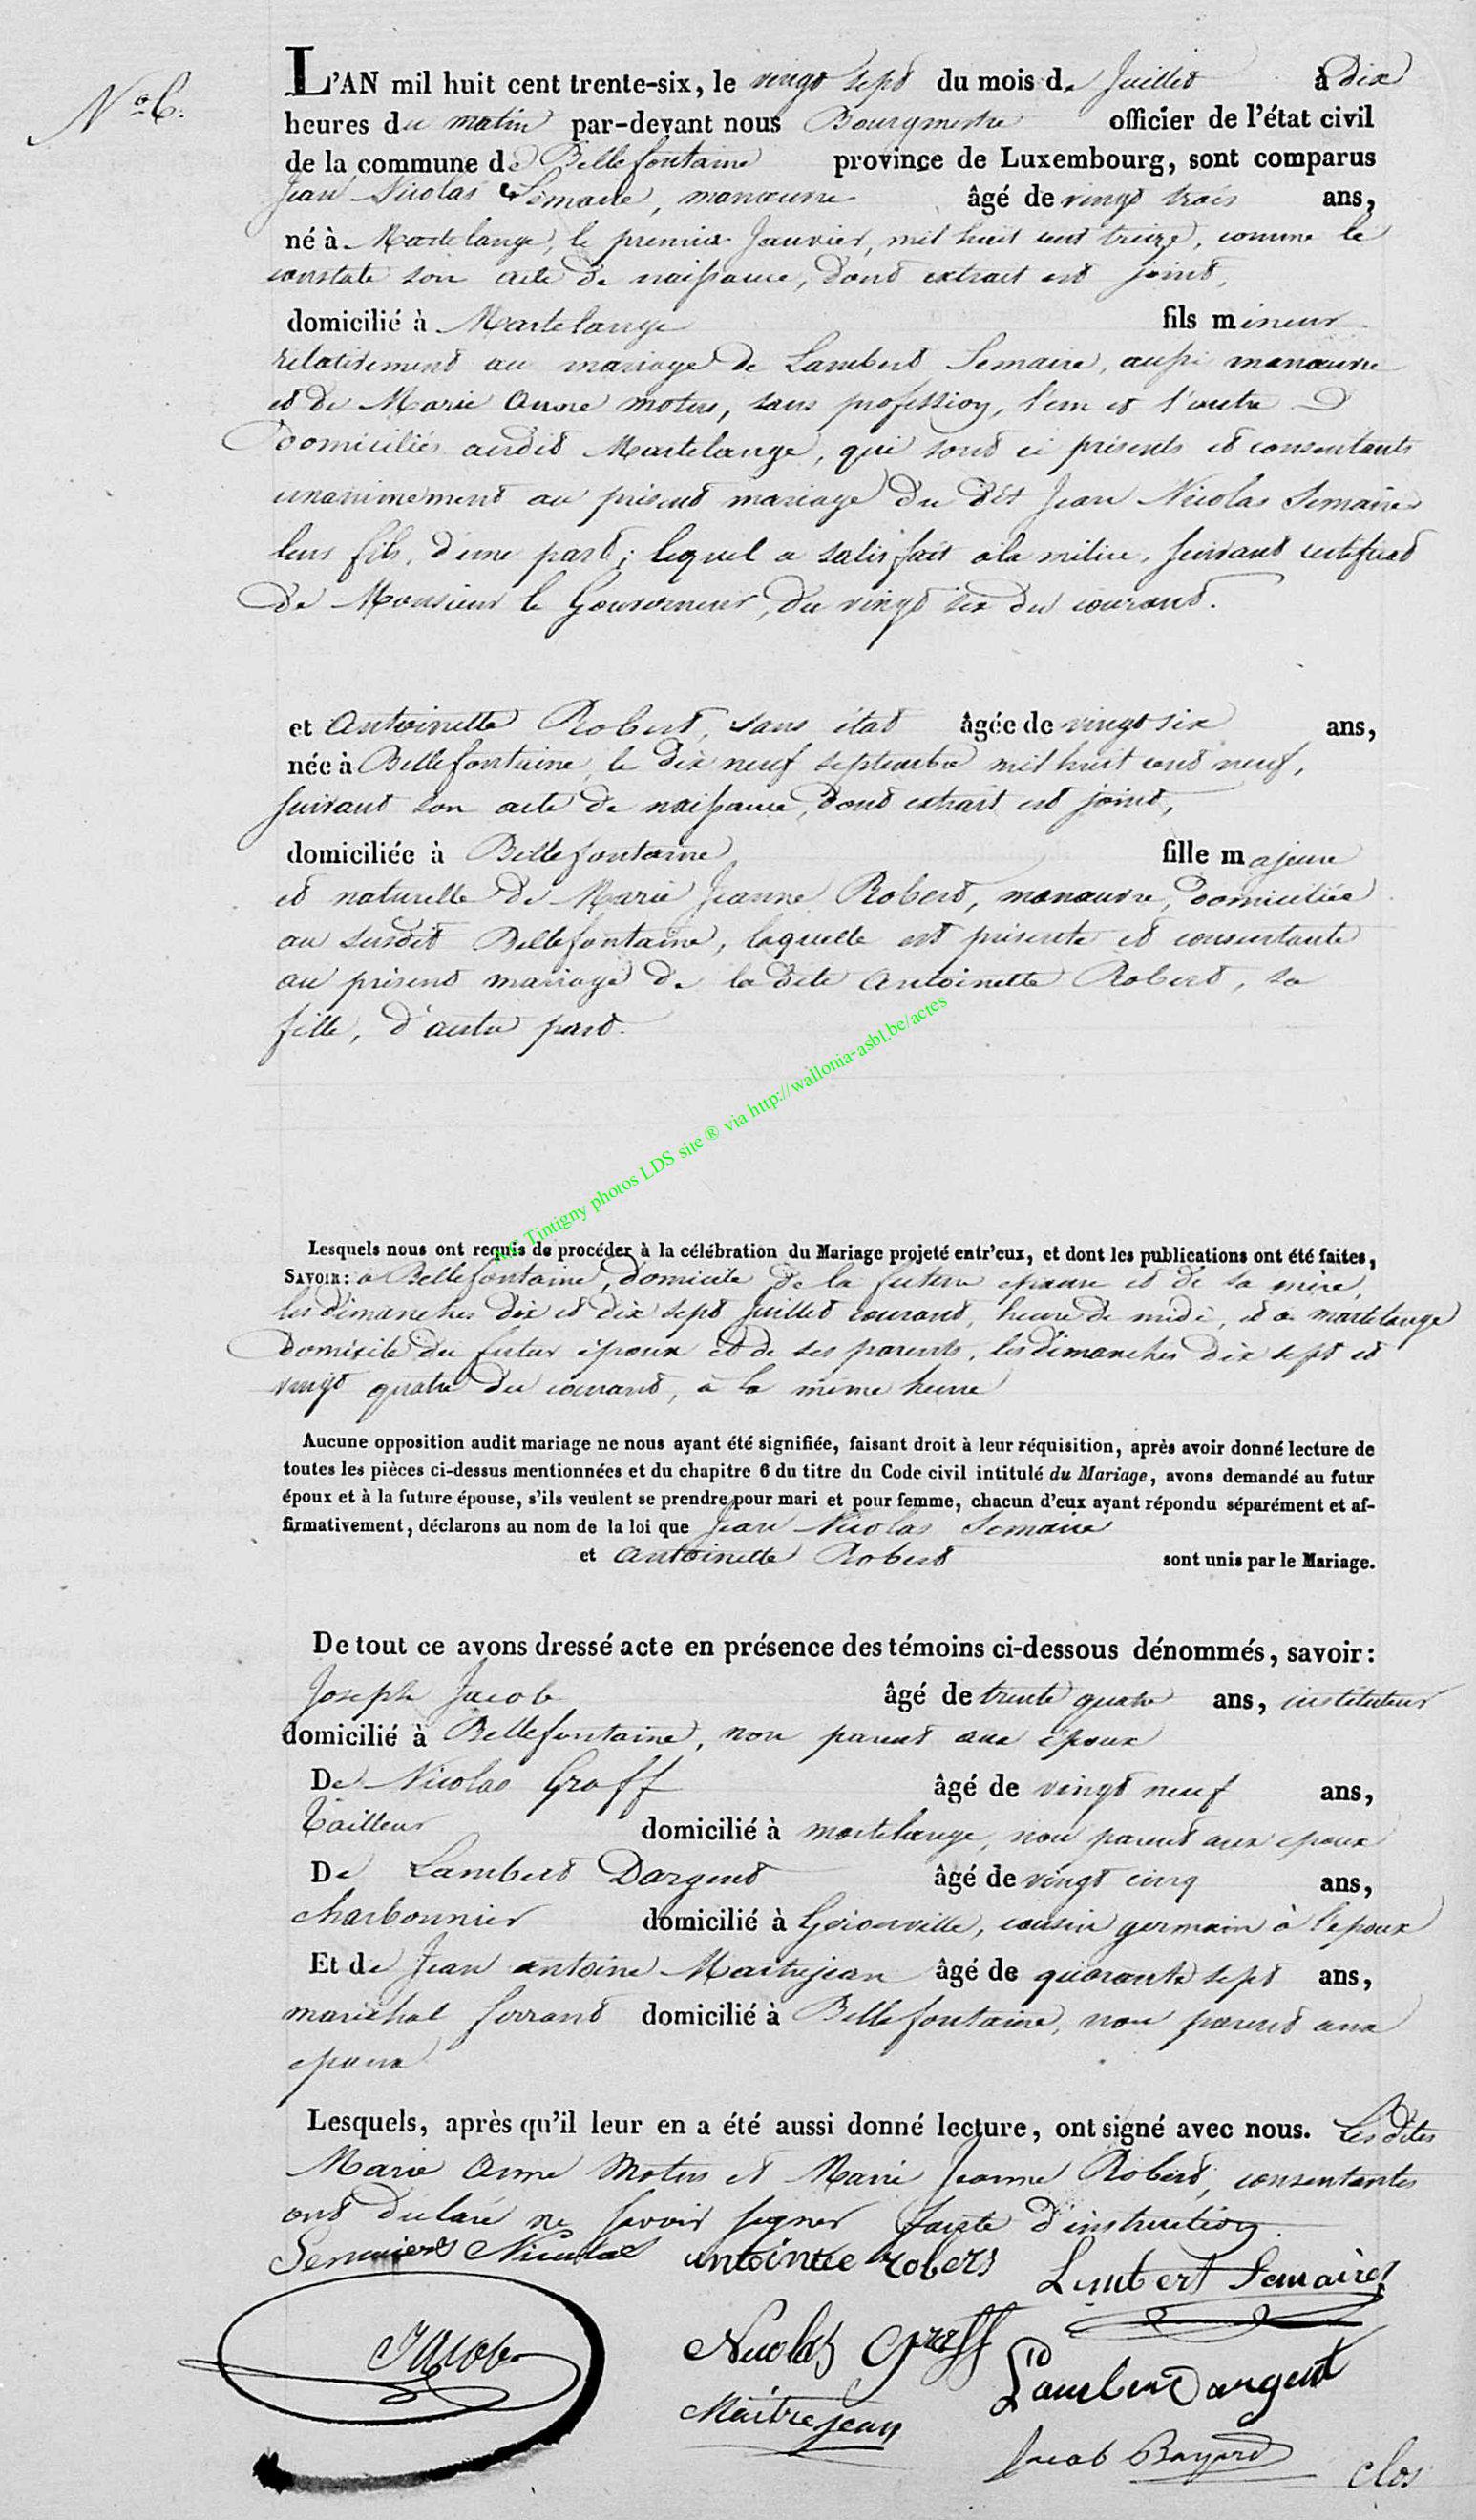 N° 6.
L'AN mil huit cent trente-six, le vingt sept du mois de Juillet à dix
heures du matin par-devant nous Bourgmestre officier de l'état civil
de la commune de Bellefontaine province de Luxembourg, sont comparus
Jean Nicolas Semaire, manœuvre âgé de vingt trois ans,
né à Martelange, le premier Janvier, mil huit cent treize, comme le
constate son acte de naissance, dont extrait est joint,
domicilié à Martelange fils mineur
relativement au mariage de Lambert Semaire, aussi manœuvre
et de Marie Anne Motus, sans profession, l'un et l'autre
domiciliés audit Martelange, qui sont ci présents et consentants
unanimement au présent mariage du dit Jean Nicolas Semaire
leur fils, d'une part; lequel a satisfait à la milice, suivant certificat
de Monsieur le Gouverneur, du vingt six du courant.
et Antoinette Robert, sans état âgée de vingt six ans,
née à Bellefontaine, le dix neuf septembre mil huit cent neuf,
suivant son acte de naissance, dont extrait est joint,
domiciliée à Bellefontaine fille majeure
et naturelle de Marie Jeanne Robert, manœuvre, domiciliée
au susdit Bellefontaine, laquelle est présente et consentante
au présent mariage de la dite Antoinette Robert, sa
fille, d'autre part.
A.E Tintigny photos LDS site ® via http://wallonia-asbl.be/actes
Lesquels nous ont requis de procéder à la célébration du Mariage projeté entr'eux, et dont les publications ont été faites,
SAVOIR: a Bellefontaine, domicile de la future epouse et de sa mère,
les dimanches dix et dix sept Juillet courant, heure de midi, et a martelange
domicile du futur époux et de ses parents, les dimanches dix sept et
vingt quatre du courant, à la même heure
Aucune opposition audit mariage ne nous ayant été signifiée, faisant droit à leur réquisition, après avoir donné lecture de
toutes les pièces ci-dessus mentionnées et du chapitre 6 du titre du Code civil intitulé du Mariage, avons demandé au futur
époux et à la future épouse, s'ils veulent se prendre pour mari et pour femme, chacun d'eux ayant répondu séparément et af-
firmativement, déclarons au nom de la loi que Jean Nicolas Semaire
et Antoinette Robert sont unis par le Mariage.
De tout ce avons dressé acte en présence des témoins ci-dessous dénommés, savoir:
Joseph Jacob âgé de trente quatre ans, instituteur
domicilié à Bellefontaine, non parent aux époux
De Nicolas Graff âgé de vingt neuf ans,
Tailleur domicilié à martelange, non parent aux epoux
De Lambert Dargent âgé de vingt cinq ans,
charbonnier domicilié à Gérouville, cousin germain à l'epoux
Et de Jean antoine Maitrejean âgé de quarante sept ans,
maréchal ferrant domicilié à Bellefontaine, non parent aux
epoux
Lesquels, après qu'il leur en a été aussi donné lecture, ont signé avec nous. Les dites
Marie Anne Motus et Marie Jeanne Robert, consentantes
ont declaré ne savoir signer faute d'instruction.
Semaiere Nicolas antointee robers Lambert Semaire
Jacob Nicolas Graff Lambert Dargent
Maitrejean
Jacob Bayard clos